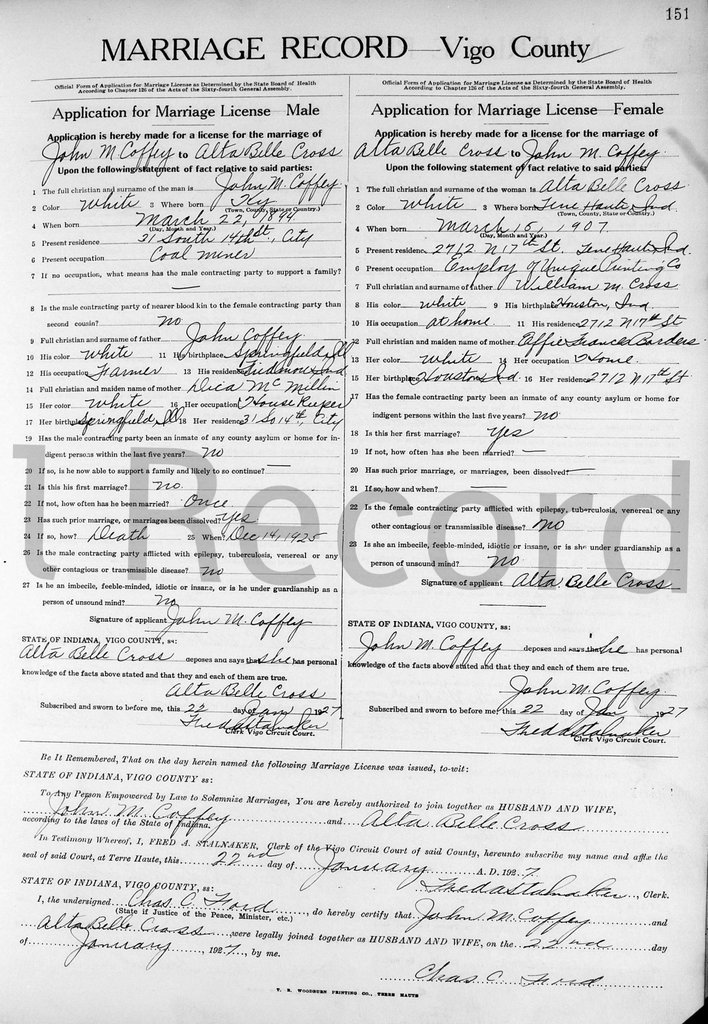 151
MARRIAGE RECORD—Vigo County
Official Form of Application for Marriage License as Determined by the State Board of Health
According to Chapter 126 of the Acts of the Sixty-fourth General Assembly.
Application for Marriage License—Male
Application is hereby made for a license for the marriage of
John M Coffey to Alta Belle Cross
Upon the following statement of fact relative to said parties:
1 The full christian and surname of the man is John M. Coffey
2 Color White 3 Where born Ky
(Town, County, State or Country.)
4 When born March 22, 1894
(Day, Month and Year.)
5 Present residence 31 South 14th St, City
6 Present occupation Coal miner
7 If no occupation, what means has the male contracting party to support a family?
—
8 Is the male contracting party of nearer blood kin to the female contracting party than
second cousin? no
9 Full christian and surname of father John Coffey
10 His color White 11 His birthplace Springfield, Ill
12 His occupation Farmer 13 His residence Ind
14 Full christian and maiden name of mother Dica McMillin
15 Her color White 16 Her occupation House Keeper
17 Her birthplace Springfield, Ill 18 Her residence 31 So 14th, City
19 Has the male contracting party been an inmate of any county asylum or home for in-
digent persons within the last five years? no
20 If so, is he now able to support a family and likely to so continue? —
21 Is this his first marriage? no.
22 If not, how often has he been married? Once
23 Has such prior marriage, or marriages been dissolved? yes
24 If so, how? Death 25 When? Dec 14, 1925
26 Is the male contracting party afflicted with epilepsy, tuberculosis, venereal or any
other contagious or transmissible disease? no
27 Is he an imbecile, feeble-minded, idiotic or insane, or is he under guardianship as a
person of unsound mind? no
Signature of applicant John M. Coffey
STATE OF INDIANA, VIGO COUNTY, ss:
Alta Belle Cross deposes and says that she has personal
knowledge of the facts above stated and that they and each of them are true.
Alta Belle Cross
Subscribed and sworn to before me, this 22 day of Jan 1927
Fred A Stalnaker
Clerk Vigo Circuit Court.
Official Form of Application for Marriage License as Determined by the State Board of Health
According to Chapter 126 of the Acts of the Sixty-fourth General Assembly.
Application for Marriage License—Female
Application is hereby made for a license for the marriage of
Alta Belle Cross to John M. Coffey
Upon the following statement of fact relative to said parties:
1 The full christian and surname of the woman is Alta Belle Cross
2 Color White 3 Where born Terre Haute Ind
(Town, County, State or Country.)
4 When born March 15, 1907
(Day, Month and Year.)
5 Present residence 2712 N 17th St. Terre Haute Ind.
6 Present occupation Employ of Unique Printing Co
7 Full christian and surname of father William M. Cross
8 His color White 9 His birthplace Houston, Ind.
10 His occupation at home 11 His residence 2712 N 17th St
12 Full christian and maiden name of mother Effie Frances Borders
13 Her color White 14 Her occupation Home.
15 Her birthplace Houston Ind 16 Her residence 2712 N 17th St
17 Has the female contracting party been an inmate of any county asylum or home for
indigent persons within the last five years? no
18 Is this her first marriage? yes
19 If not, how often has she been married? —
20 Has such prior marriage, or marriages, been dissolved? —
21 If so, how and when? —
22 Is the female contracting party afflicted with epilepsy, tuberculosis, venereal or any
other contagious or transmissible disease? no
23 Is she an imbecile, feeble-minded, idiotic or insane, or is she under guardianship as a
person of unsound mind? no
Signature of applicant Alta Belle Cross
STATE OF INDIANA, VIGO COUNTY, ss:
John M. Coffey deposes and says that he has personal
knowledge of the facts above stated and that they and each of them are true.
John M. Coffey
Subscribed and sworn to before me, this 22 day of Jan 1927
Fred A Stalnaker
Clerk Vigo Circuit Court.
l Record
Be It Remembered, That on the day herein named the following Marriage License was issued, to-wit:
STATE OF INDIANA, VIGO COUNTY ss:
To Any Person Empowered by Law to Solemnize Marriages, You are hereby authorized to join together as HUSBAND AND WIFE,
John M. Coffey and Alta Belle Cross
according to the laws of the State of Indiana.
In Testimony Whereof, I, FRED A. STALNAKER, Clerk of the Vigo Circuit Court of said County, hereunto subscribe my name and affix the
seal of said Court, at Terre Haute, this 22nd day of January A. D. 1927.
Fred A Stalnaker, Clerk.
STATE OF INDIANA, VIGO COUNTY, ss:
I, the undersigned Chas C. Ford, do hereby certify that John M. Coffey and
(State if Justice of the Peace, Minister, etc.)
Alta Belle Cross were legally joined together as HUSBAND AND WIFE, on the 22nd day
of January, 1927, by me.
Chas C. Ford
T. R. WOODBURN PRINTING CO., TERRE HAUTE